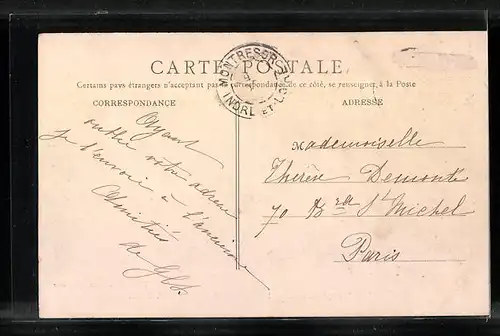 CARTE POSTALE
Certains pays étrangers n'acceptant pas de correspondance de ce côté, se renseigner à la Poste
MONTRESOR
INDRE-ET-L
CORRESPONDANCE
Ayant
oublié votre adresse
je l'envoie à l'ancienne
Amitiés
de
ADRESSE
Mademoiselle
Thérèse Demonte
70 Bd St Michel
Paris